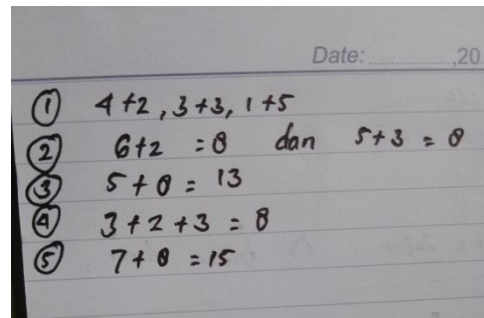 Date: ..................,20
① 4+2, 3+3, 1+5
② 6+2 = 8 dan 5+3 = 8
③ 5+8 = 13
④ 3+2+3 = 8
⑤ 7+8 = 15